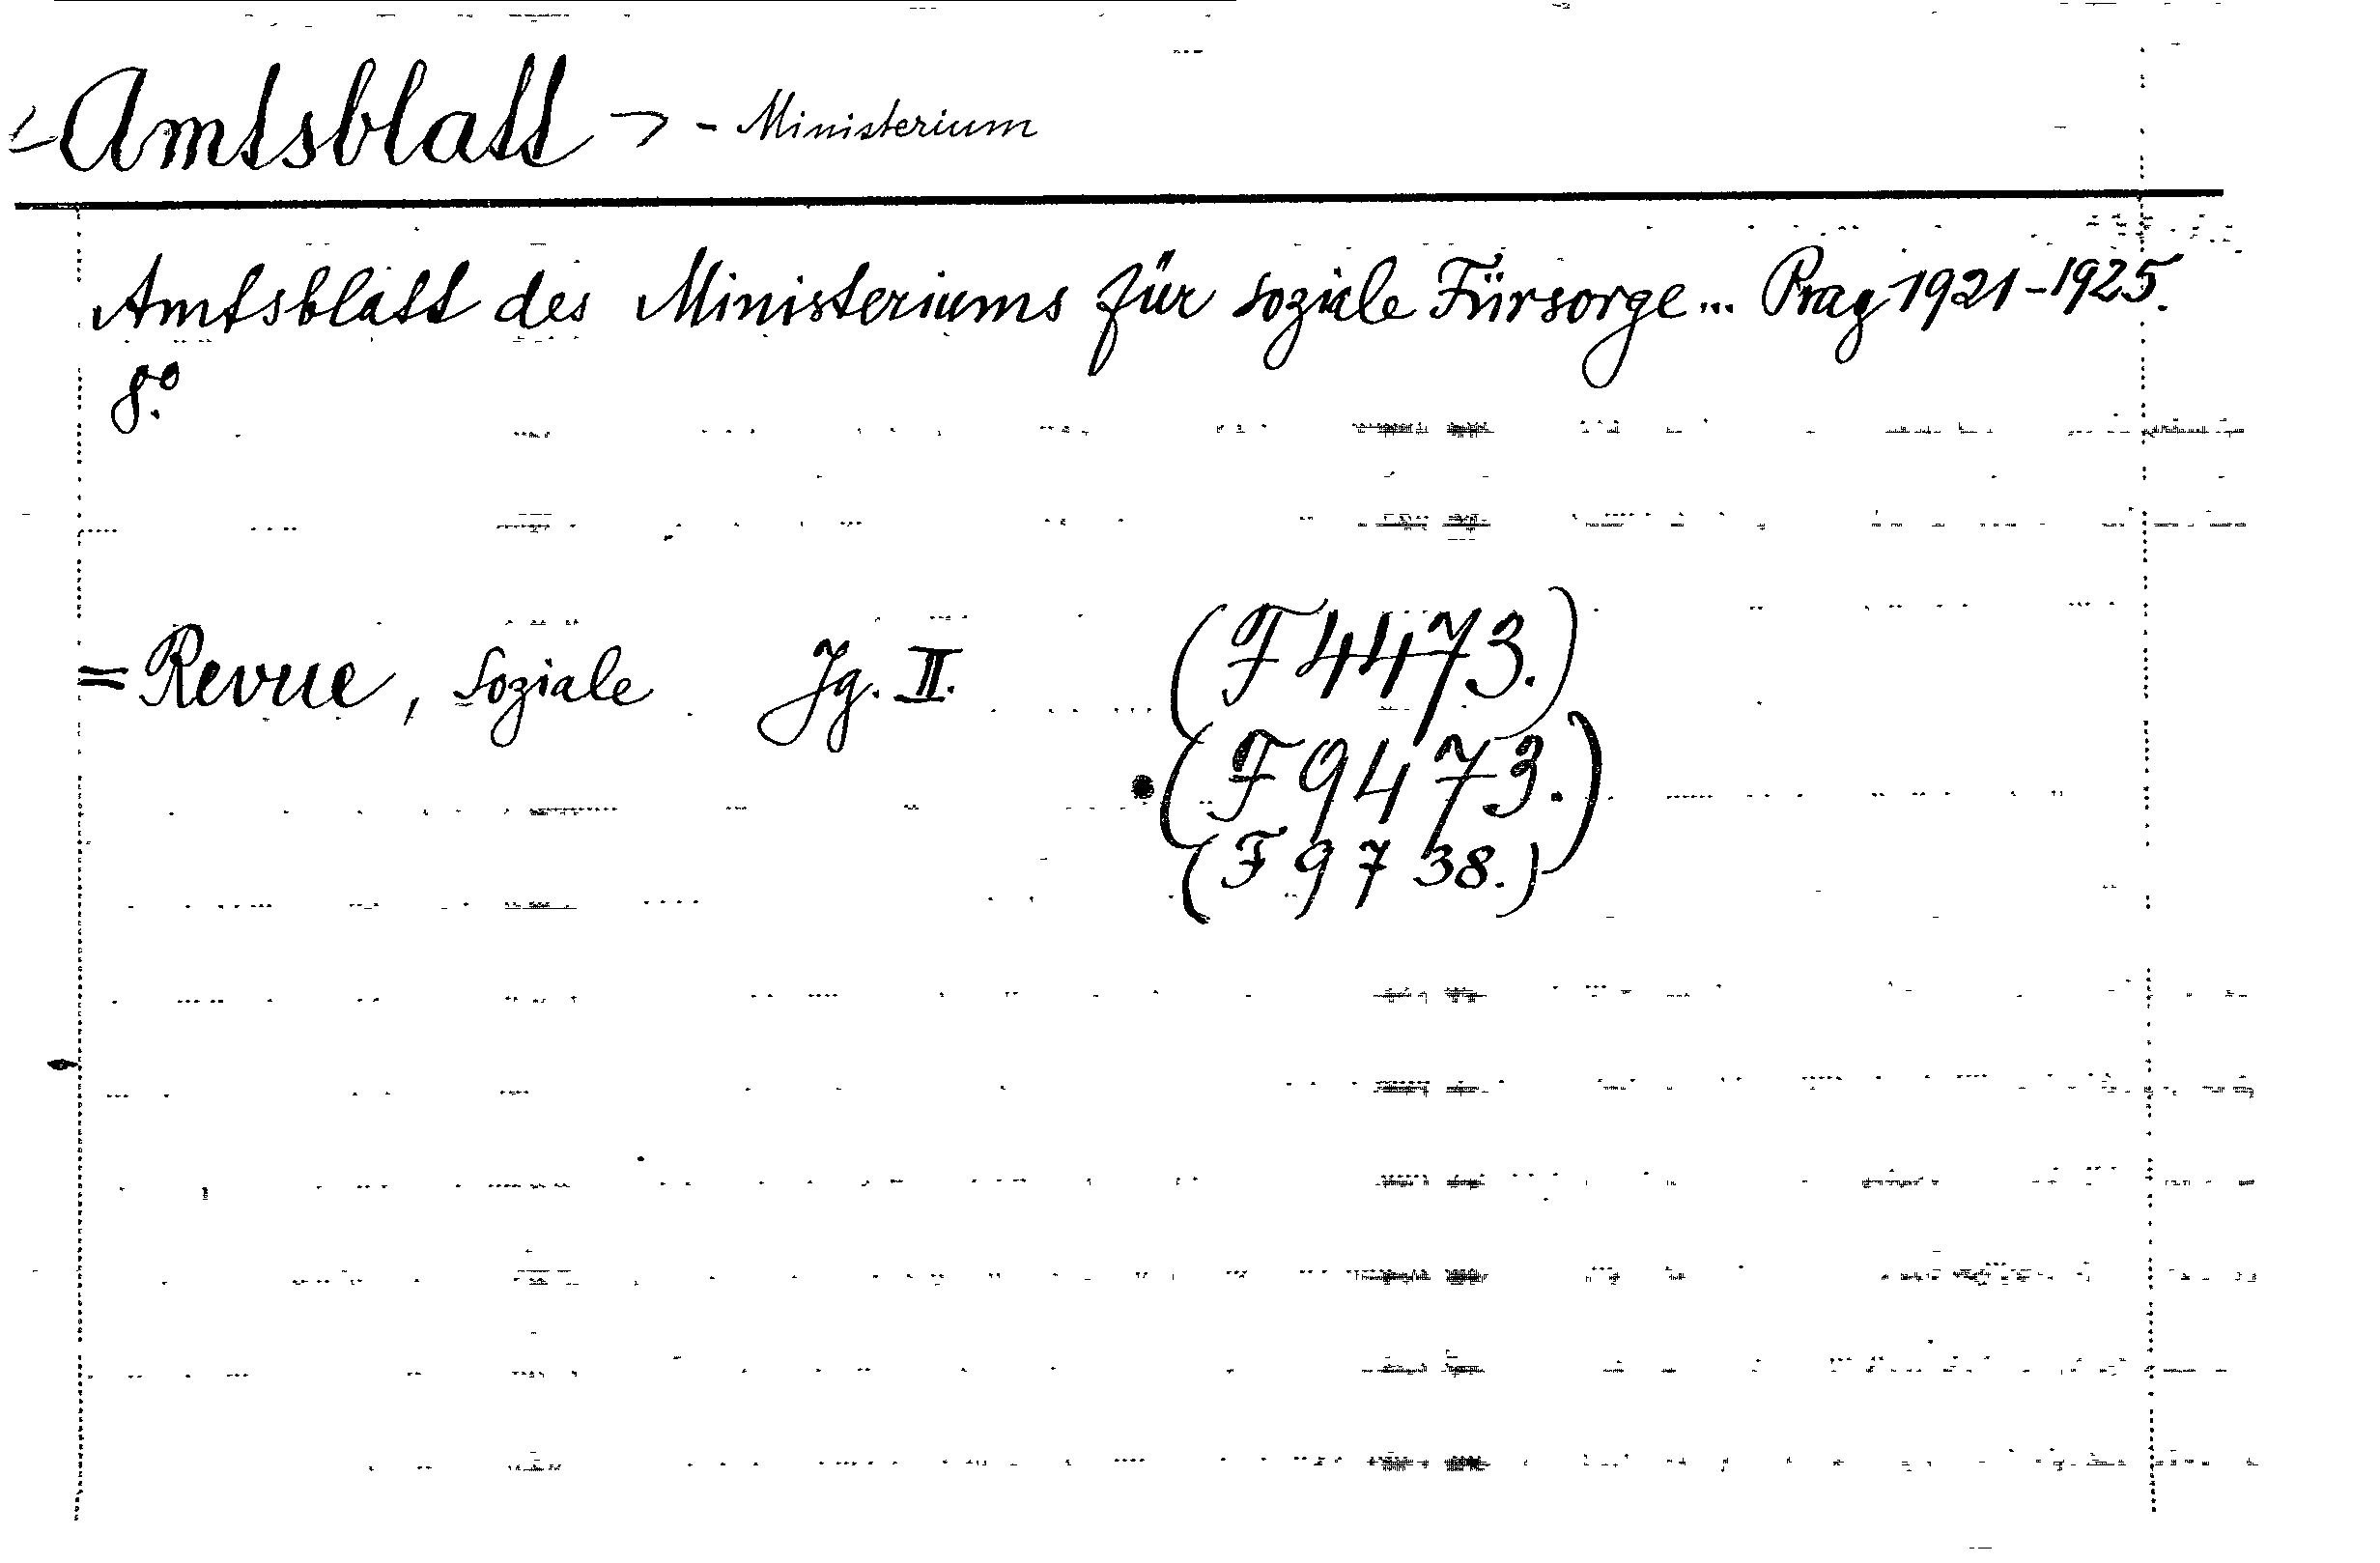 Amtsblatt - Ministerium
Amtsblatt des Ministeriums für soziale Fürsorge ... Prag 1921-1925.
8.º
= Revue, soziale Jg. II. (F 4473.)
(F 9473.)
(F 9738.)